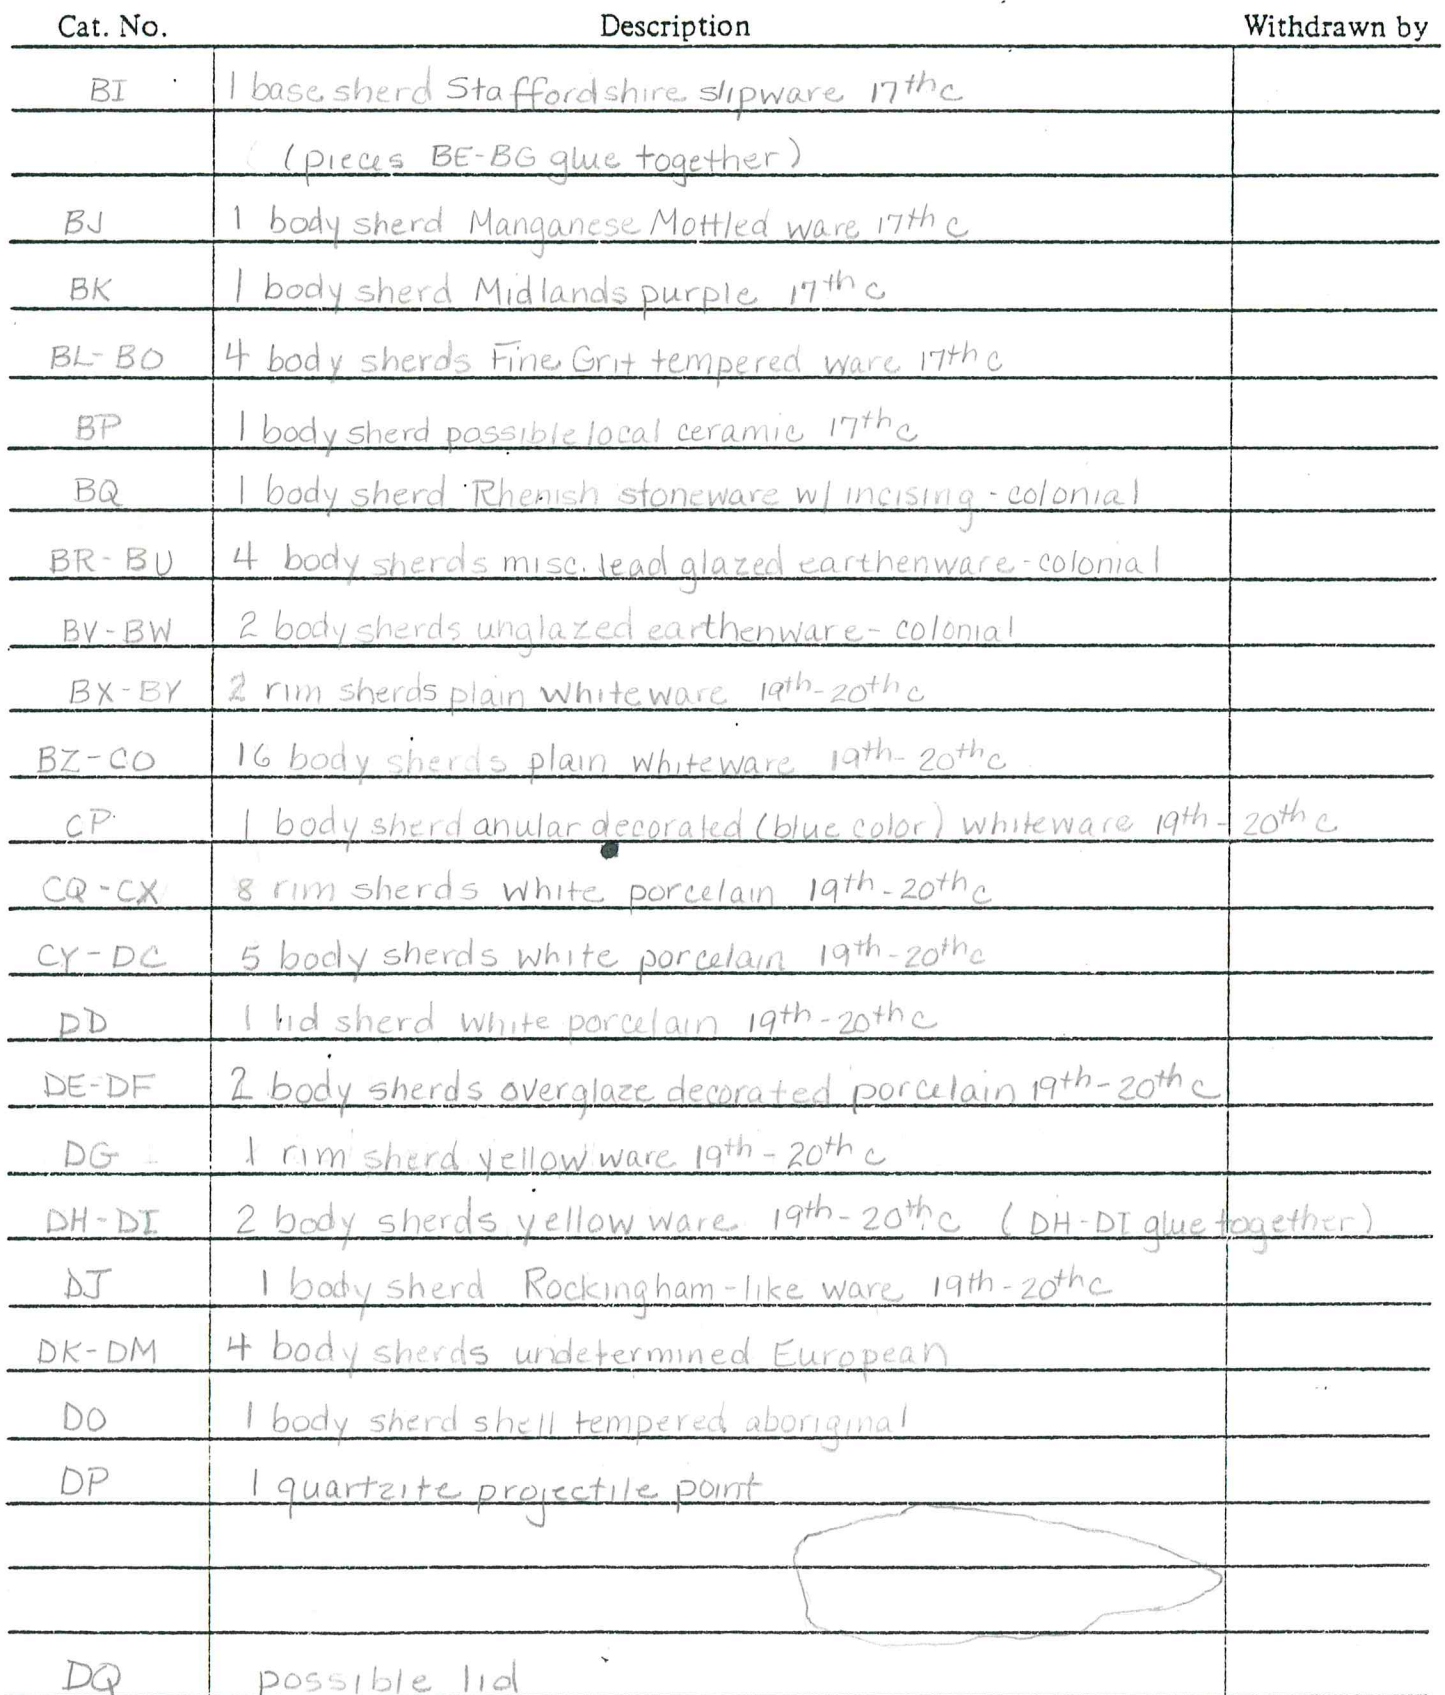 Cat. No. Description Withdrawn by
BI 1 base sherd Staffordshire slipware 17th c
(pieces BE-BG glue together)
BJ 1 body sherd Manganese Mottled ware 17th c
BK 1 body sherd Midlands purple 17th c
BL-BO 4 body sherds Fine Grit tempered ware 17th c
BP 1 body sherd possible local ceramic 17th c
BQ 1 body sherd Rhenish stoneware w/ incising - colonial
BR-BU 4 body sherds misc. lead glazed earthenware - colonial
BV-BW 2 body sherds unglazed earthenware - colonial
BX-BY 2 rim sherds plain whiteware 19th-20th c
BZ-CO 16 body sherds plain whiteware 19th-20th c
CP 1 body sherd anular decorated (blue color) whiteware 19th-20th c
CQ-CX 8 rim sherds white porcelain 19th-20th c
CY-DC 5 body sherds white porcelain 19th-20th c
DD 1 lid sherd white porcelain 19th-20th c
DE-DF 2 body sherds overglaze decorated porcelain 19th-20th c
DG 1 rim sherd yellow ware 19th-20th c
DH-DI 2 body sherds yellow ware 19th-20th c (DH-DI glue together)
DJ 1 body sherd Rockingham-like ware 19th-20th c
DK-DM 4 body sherds undetermined European
DO 1 body sherd shell tempered aboriginal
DP 1 quartzite projectile point
DQ possible lid